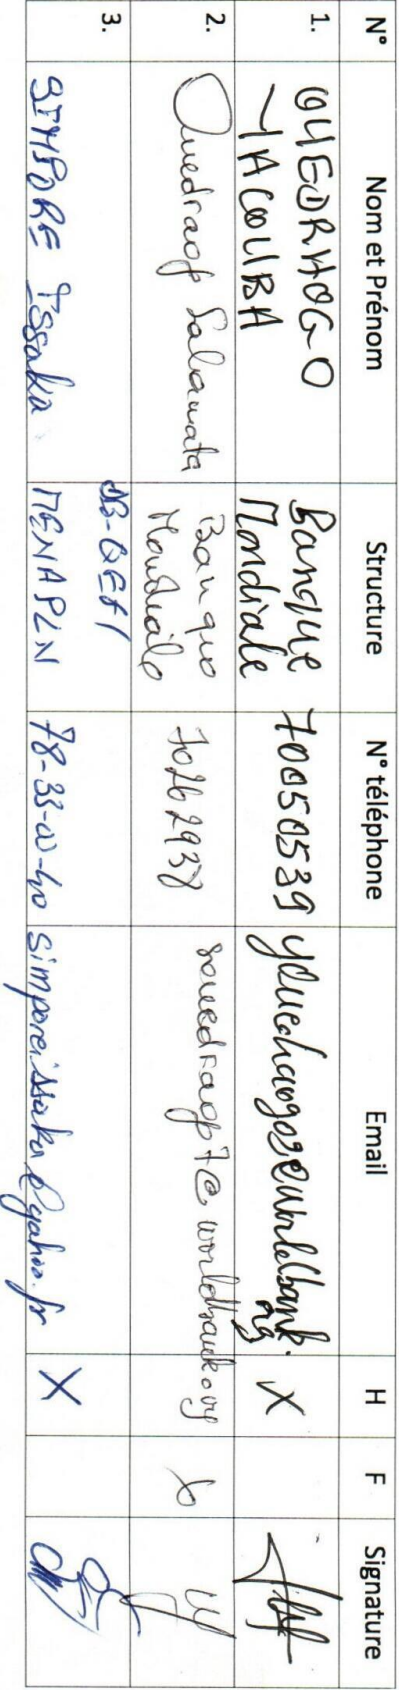 N° Nom et Prénom Structure N° téléphone Email H F Signature
1. OUEDRAOGO YACOUBA Banque Mondiale 70050539 X
2. Ouedraogo Salamata Banque Mondiale 70262938 souedraogo7@worldbank.org X
3. SIMPORE Issaka MENAPLN 78-33-00-40 simporeissaka@yahoo.fr X